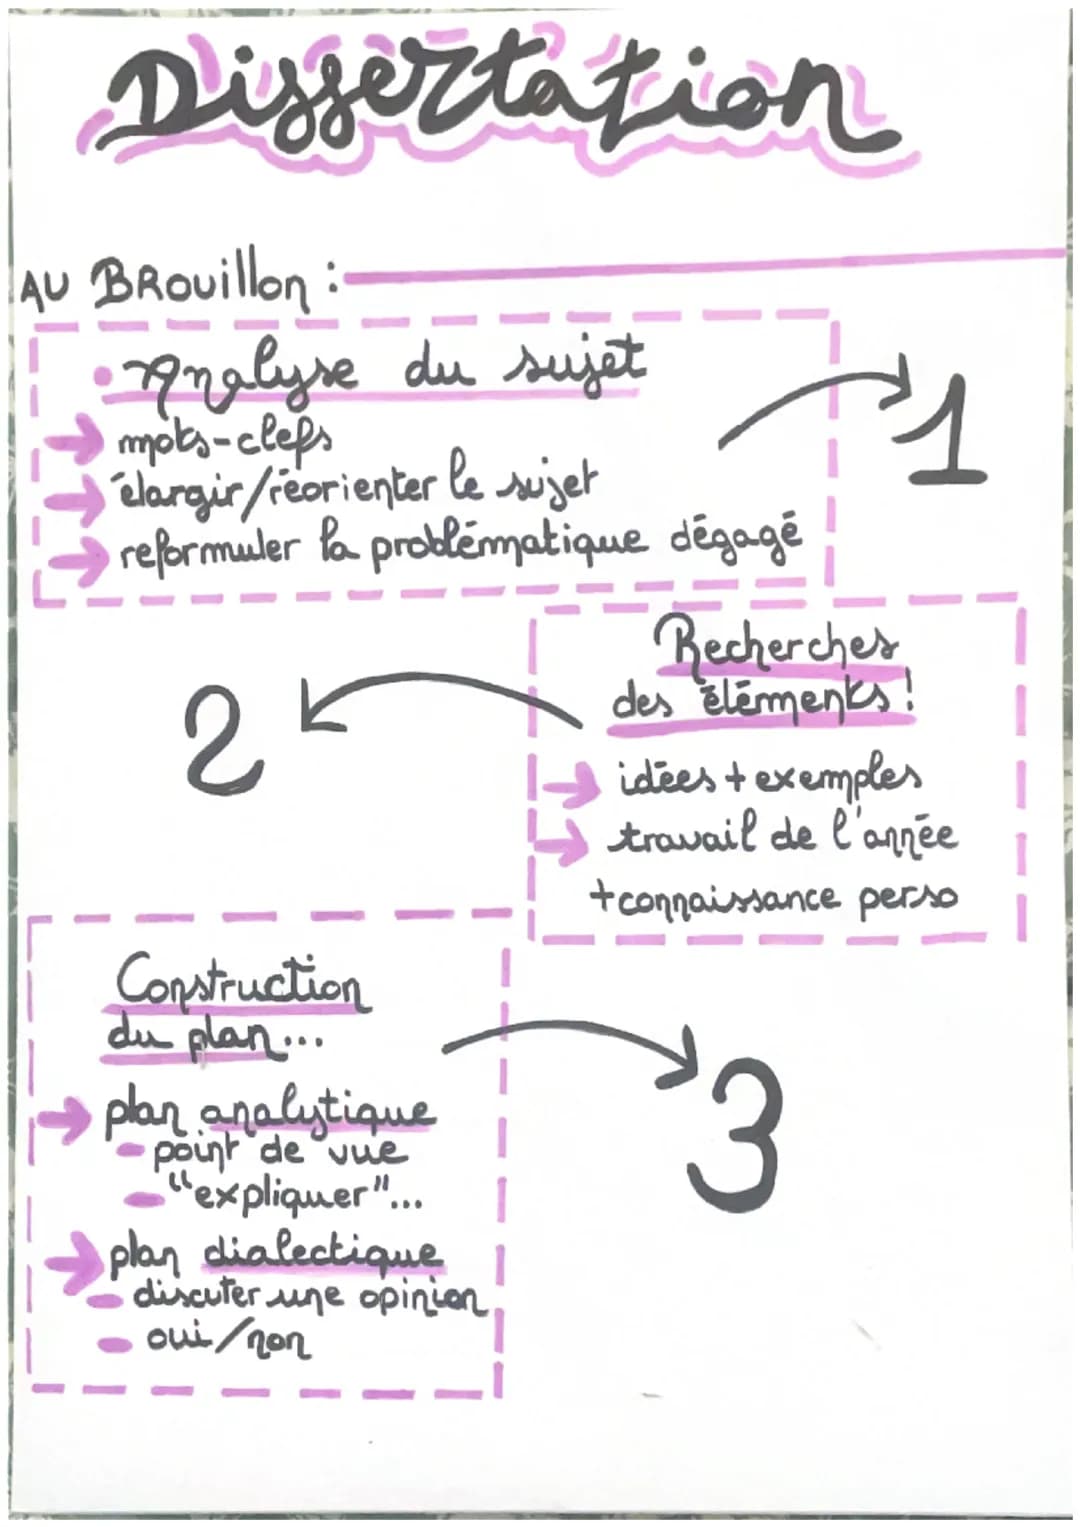 Dissertation
AU BRouillon :
• Analyse du sujet
→ mots-clefs
→ élargir/réorienter le sujet
→ reformuler la problématique dégagé
1
Recherches
des éléments !
→ idées + exemples
→ travail de l'année
+ connaissance perso
2
Construction
du plan...
→ plan analytique
- point de vue
- "expliquer"...
→ plan dialectique
- discuter une opinion
- oui/non
3